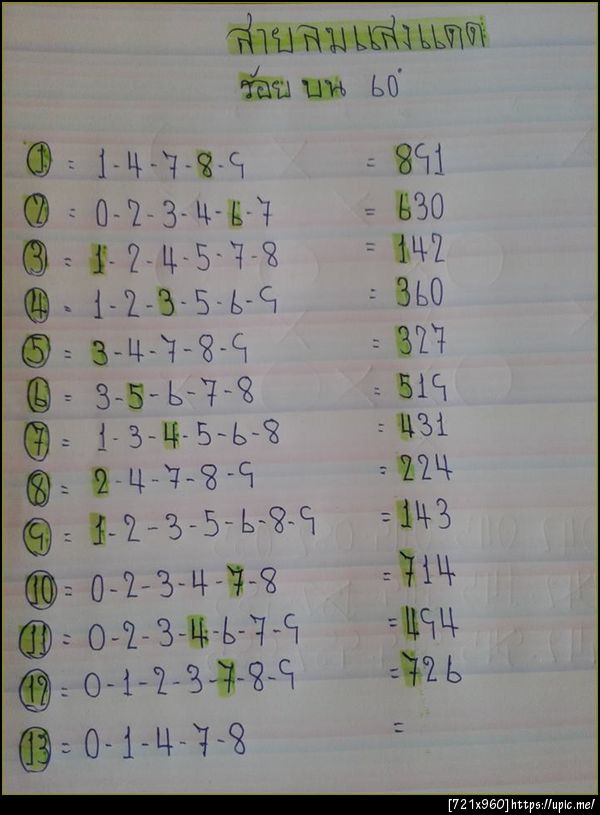 สายลมแสงแดด
ร้อย บน 60'
1 = 1-4-7-8-9 = 891
2 = 0-2-3-4-6-7 = 630
3 = 1-2-4-5-7-8 = 142
4 = 1-2-3-5-6-9 = 360
5 = 3-4-7-8-9 = 327
6 = 3-5-6-7-8 = 519
7 = 1-3-4-5-6-8 = 431
8 = 2-4-7-8-9 = 224
9 = 1-2-3-5-6-8-9 = 143
10 = 0-2-3-4-7-8 = 714
11 = 0-2-3-4-6-7-9 = 494
12 = 0-1-2-3-7-8-9 = 726
13 = 0-1-4-7-8 =
[721x960]https://upic.me/